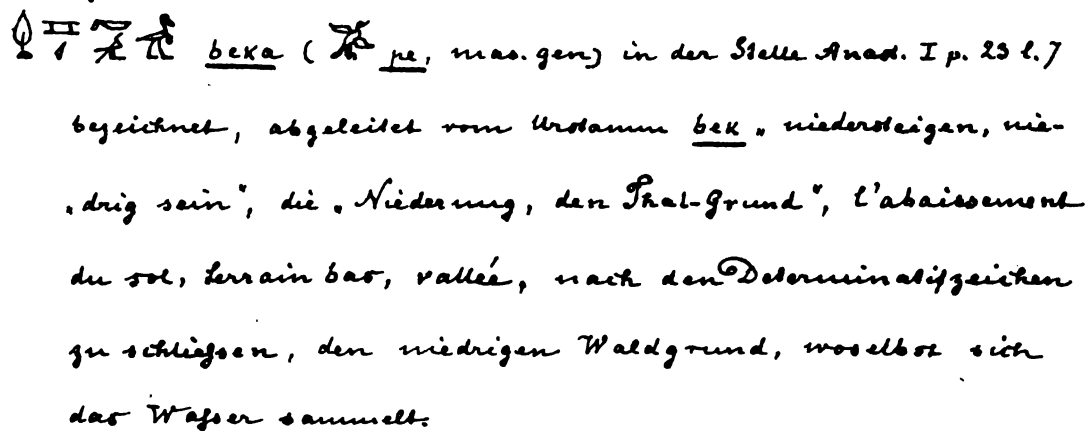 beka ( pe, mas. gen) in der Stelle Anast. I p. 23 l. 7
bezeichnet, abgeleitet vom Urstamm bek „niedersteigen, nie-
„drig sein", die „Niederung, den Thal-Grund", l'abaissement
du sol, terrain bas, vallée, nach den Determinatifzeichen
zu schließen, den niedrigen Waldgrund, woselbst sich
das Waſser sammelt.